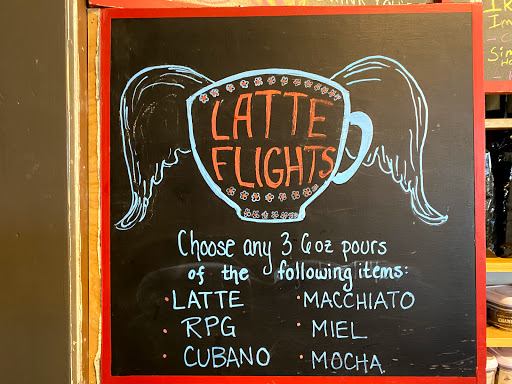 LATTE
FLIGHTS
Choose any 3 6oz pours
of the following items:
• LATTE • MACCHIATO
• RPG • MIEL
• CUBANO • MOCHA